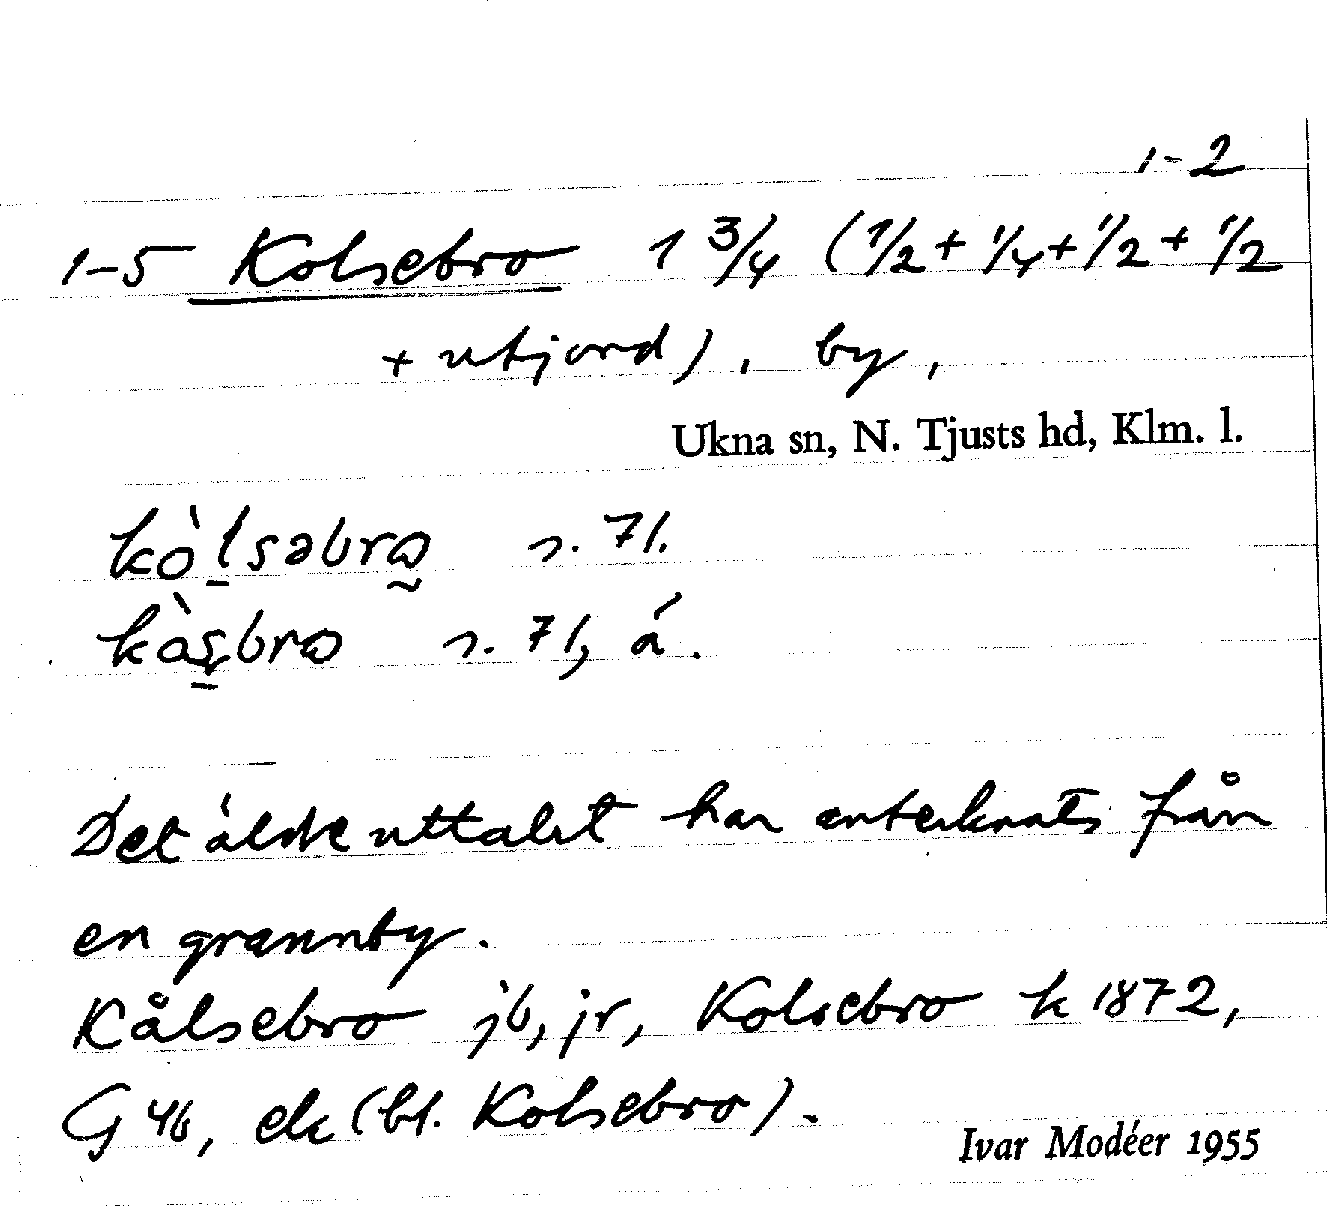 1-2
1-5 Kolsebro 1 3/4 (1/2 + 1/4 + 1/2 + 1/2
+ utjord), by,
Ukna sn, N. Tjusts hd, Klm. l.
kòlsəbrω s. 71.
kòsbrω s. 71, á.
Det äldre uttalet har antecknats från
en grannby.
Kålsebro jb, jr, Kolsebro k 1872,
G 46, ek (bl. Kolsebro).
Ivar Modéer 1955